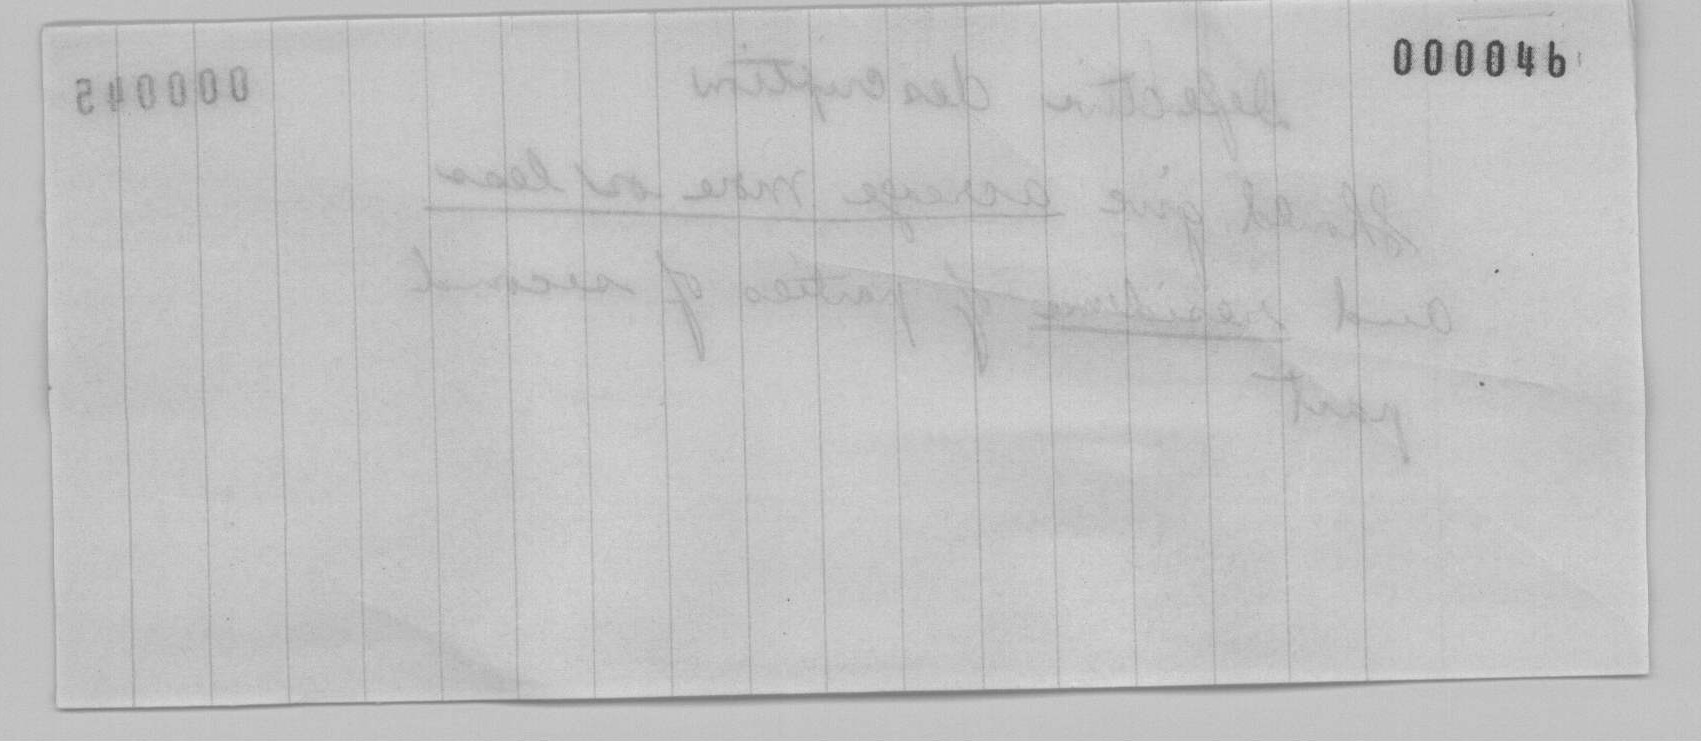 000046
000045
Defective description
Should give acreage more or less
and residence of parties of second
part